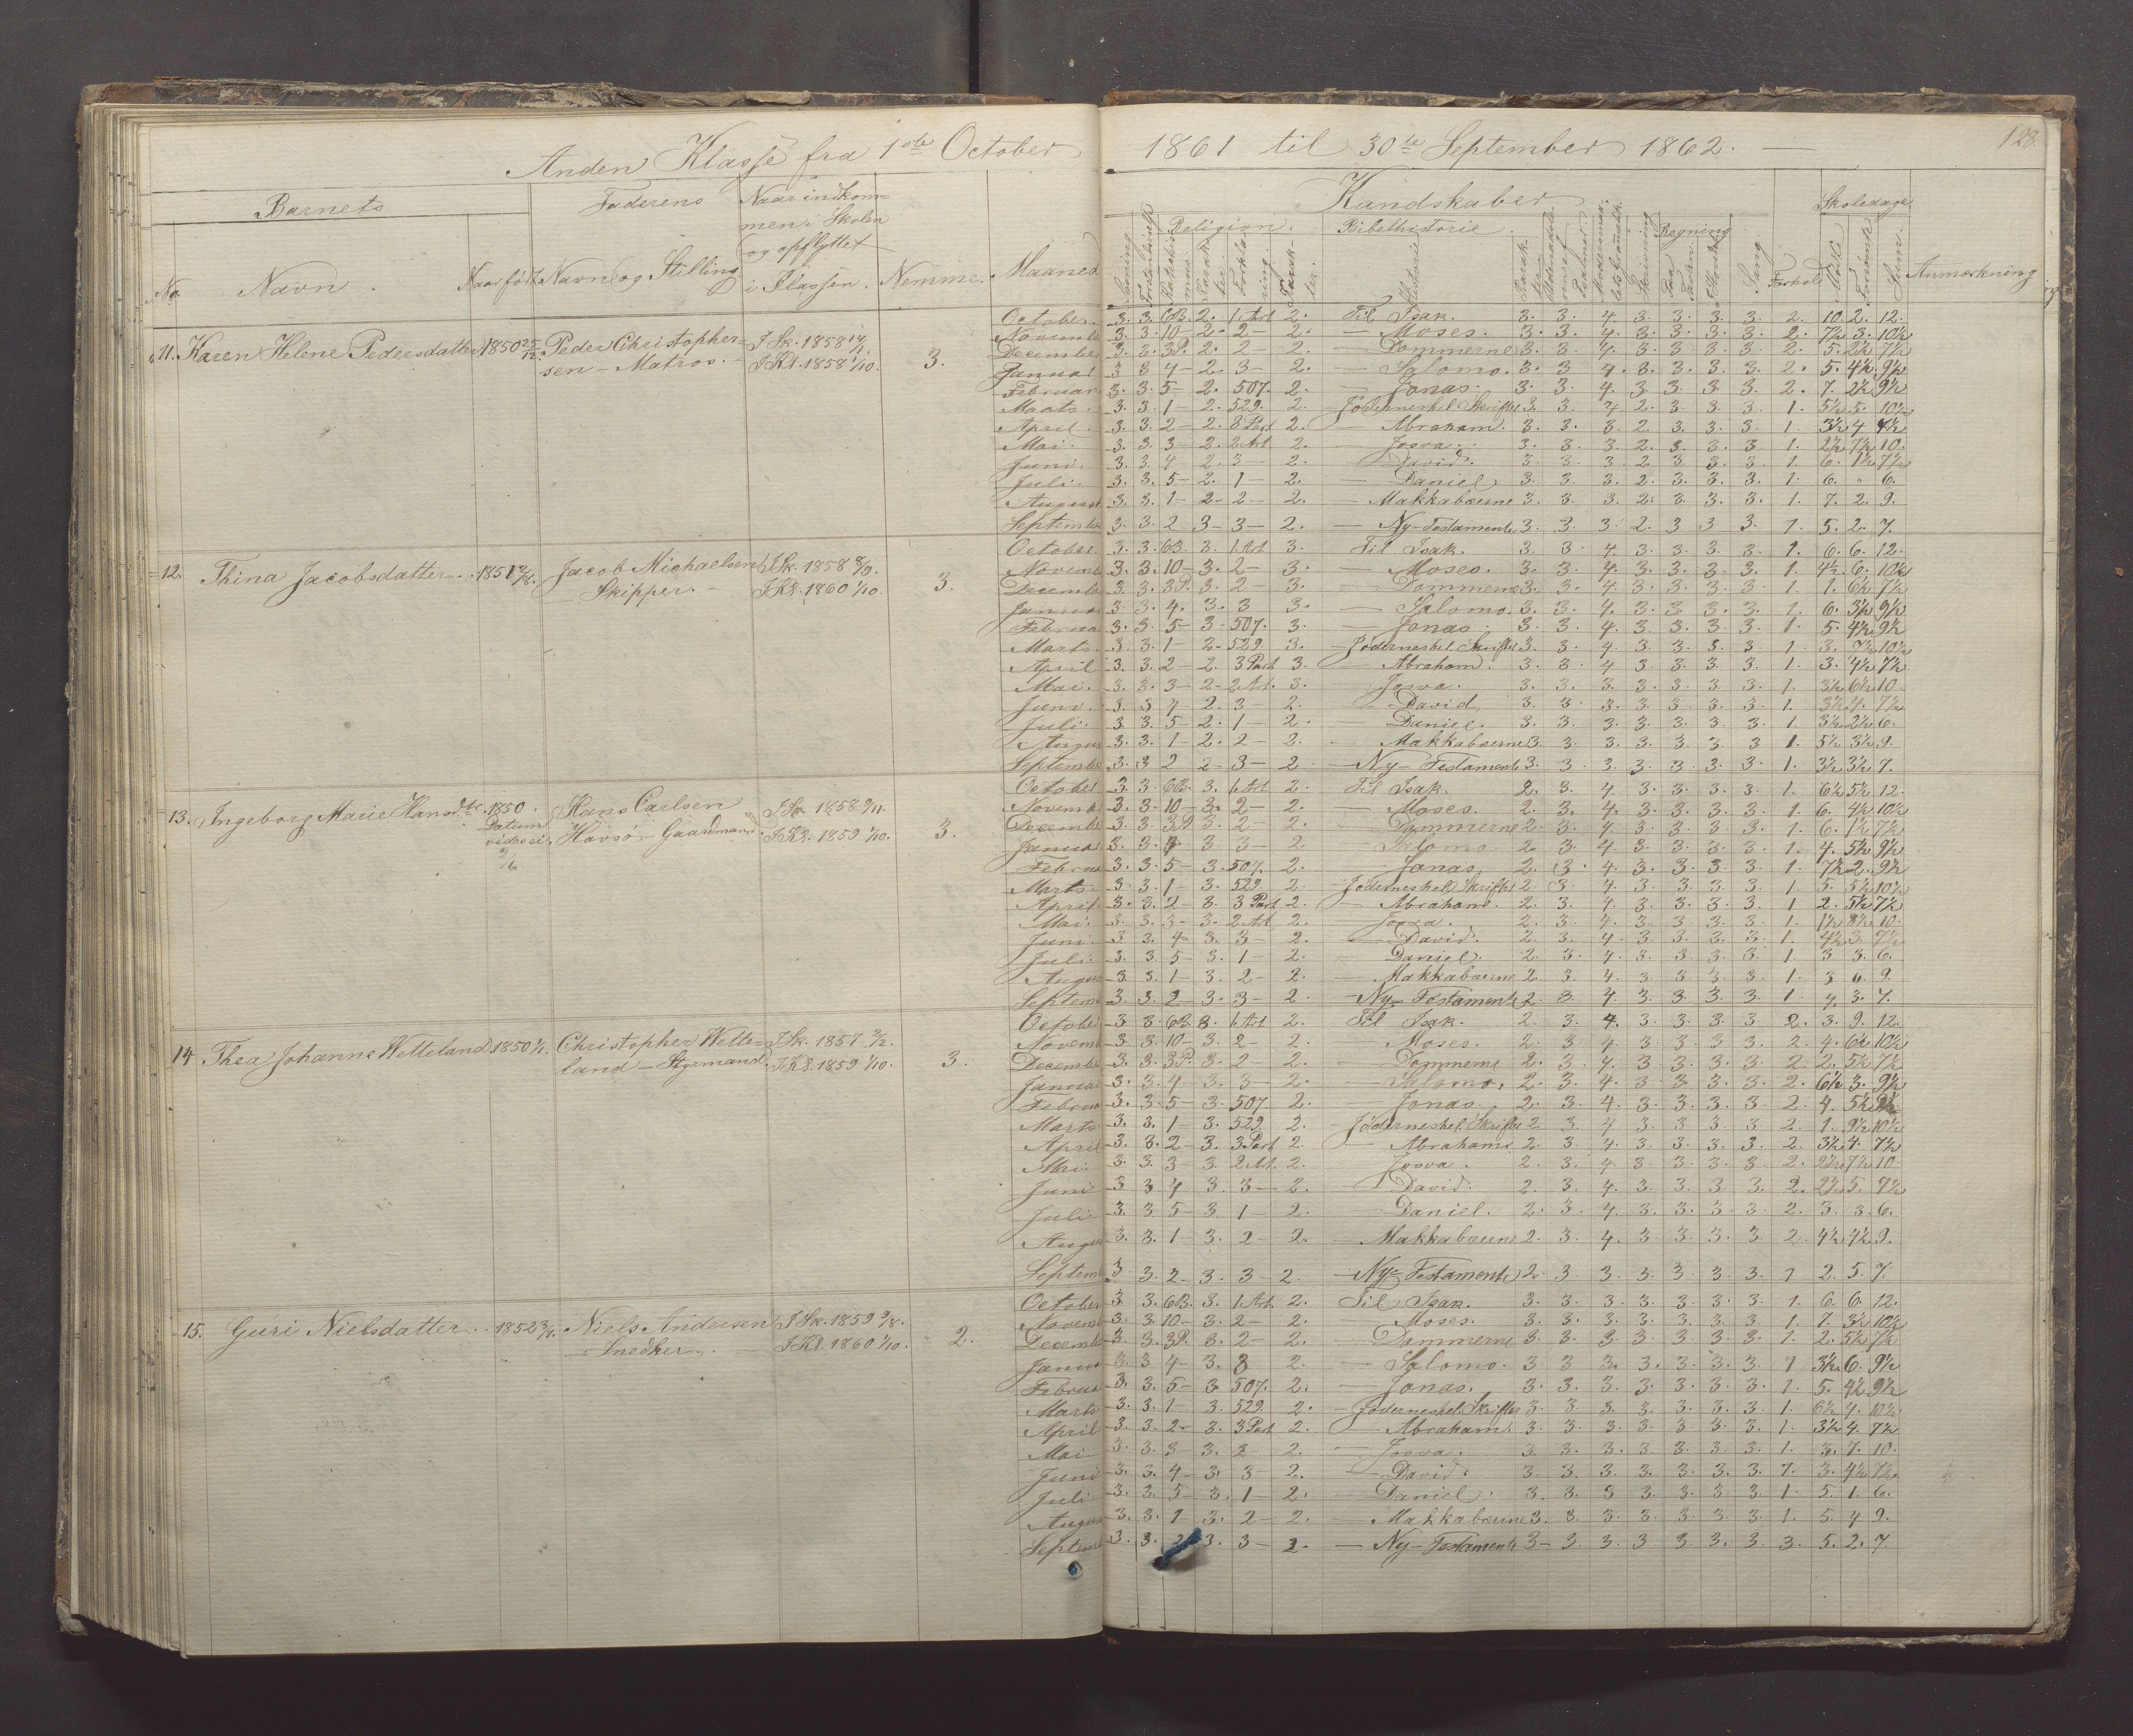 Anden Klasse fra 1ste October 1861 til 30te September 1862. —
128.
Barnets
Faderens
Naar indkom-
men i Skolen
og opflyttet
i Klassen.
Nemme.
Maaned
Kundskaber
Skoledage
No.
Navn.
Naar født
Navn og Stilling
Religion.
Bibelhistorie.
Regning
Sang
Forhold
Mødte
Forsømte
Sum.
Anmerkning
11. Karen Helene Pedersdatter 1850 25/12. Peder Christopher- I Sk. 1858
sen - Matros. - I Kl. 1858 1/10. 3.
October. 3. 3. 6B. 2. 1 Art 2. Til Isak. 3. 3. 4. 3. 3. 3. 3. 2. 10. 2. 12.
Novemb 3. 3. 10 - 2 - 2 - 2. — Moses. 3. 3. 4. 3. 3. 3. 3. 2. 7½ 3. 10½
Decembe 3. 3. 3P. 2. 2 2. — Dommerne 3. 3. 4. 3. 3. 3. 3. 2. 5. 2½ 7½
Januar 3 3 4 - 2 3 - 2. — Salomo. 3. 3 4. 3. 3. 3. 3. 2. 5. 4½ 9½
Februar 3. 3. 5 - 2. 507. 2. — Jonas. 3. 3. 4. 3. 3. 3. 3. 2. 7. 2½ 9½
Marts. 3. 3. 1 - 2. 529. 2. — Jødernes hel. Skrifter 3. 3. 4 2. 3. 3. 3. 1. 5½ 5. 10½
April. 3. 3. 2 - 2. 3 Part 2. — Abraham. 3. 3. 3. 2. 3. 3. 3. 1. 3½ 4 7½
Mai. 3. 3. 3 - 2. 2 Art 2. — Josva. 3. 3. 3. 2. 3. 3. 3. 1. 2½ 7½ 10.
Juni. 3. 3. 4 2. 3 - 2. — David. 3. 3. 3. 2. 3. 3. 3. 1. 6. 1½ 7½
Juli. 3. 3. 5 - 2. 1 - 2. — Daniel 3. 3. 3. 2. 3. 3. 3. 1. 6. " 6.
August 3. 3. 1 - 2 - 2 - 2. — Makkabæerne 3. 3. 3. 2. 3. 3. 3. 1. 7. 2. 9.
Septembe 3. 3 2 3 - 3 - 2. — Ny-Testamente 3. 3. 3. 2. 3 3 3. 1. 5. 2. 7.
12. Thina Jacobsdatter. 1851 Jacob Michaelsen I Sk. 1858
Skipper. - I Kl. 1860 1/10. 3.
October. 3. 3. 6B. 3. 1 Art 3. Til Isak. 3. 3. 4. 3. 3. 3. 3. 1. 6. 6. 12.
Novemb 3. 3. 10 - 3. 2 - 3. — Moses. 3. 3. 4. 3. 3. 3. 3. 1. 4½. 6. 10½
Decembe 3. 3. 3P. 3. 2 - 3. — Dommerne 3. 3. 4. 3. 3. 3. 3. 1. 1. 6½ 7½
Januar 3. 3. 4. 3. 3 3. — Salomo. 3. 3. 4. 3. 3. 3. 3. 1. 6. 3½ 9½
Februar 3. 3. 5 - 3 - 507. 3. — Jonas. 3. 3. 4. 3. 3. 3. 3. 1. 5. 4½ 9½
Marts. 3. 3. 1 - 2. 529. 3. — Jødernes hel. Skrifter 3. 3. 4. 3. 3. 3. 3. 1. 3. 7½ 10½
April 3. 3. 2 - 2. 3 Part 3. — Abraham. 3. 3. 4 3. 3. 3. 3. 1. 3. 4½ 7½
Mai. 3. 3. 3 - 2 - 2 Art. 3. — Josva. 3. 3. 3. 3. 3. 3. 3. 1. 3½ 6½ 10.
Juni. 3. 3 4 2. 3 - 2. — David 3. 3. 3. 3. 3. 3. 3. 1. 3½ 4. 7½
Juli. 3. 3. 5 - 2. 1 - 2. — Daniel. 3. 3. 3. 3. 3. 3. 3. 1. 3½ 2½ 6.
Augus 3. 3. 1 - 2. 2 - 2. — Makkabæerne 3. 3. 3. 3. 3. 3 3 1. 5½ 3½ 9.
Septembe 3. 3 2 2 - 3 - 2. — Ny-Testamente 3. 3. 3. 3. 3. 3. 3. 1. 3½ 3½ 7.
13. Ingeborg Marie Hansdtr. 1850. Hans Carlsen I Sk. 1858 9/11.
Datum vides ei. Håvsø - Gaardmand. I Kl. 1859 1/10. 3.
October 3. 3 6B. 3. 1 Art 2. Til Isak. 2. 3. 4. 3. 3. 3. 3. 1. 6½ 5½ 12.
Novemb 3. 3. 10 - 3. 2 - 2. — Moses. 2. 3. 4. 3. 3. 3. 3. 1. 6. 4½ 10½
Decembe 3. 3. 3P 3. 2 - 2. — Dommerne 2. 3. 4. 3. 3. 3. 3. 1. 6. 1½ 7½
Januar 3. 3. 4 3 3 - 2 — Salomo. 2 3 4. 3. 3. 3. 3. 1. 4. 5½ 9½
Februa 3. 3 5 - 3. 507. 2. — Jonas 2. 3. 4. 3. 3. 3. 3. 1. 7½ 2. 9½
Marts. 3. 3. 1 - 3. 529 2. — Jødernes hel. Skrifter 2. 3. 4. 3. 3. 3. 3. 1. 5. 5½ 10½
April. 3. 3. 2 - 3. 3 Part 2. — Abraham. 2. 3. 4. 3. 3. 3. 3. 1 2. 5½ 7½
Mai. 3. 3. 3 - 3. 2 Art 2. — Josva. 2. 3. 4. 3. 3. 3. 3. 1. 1½ 8½ 10.
Juni. 3 3. 4 - 3. 3 - 2. — David. 2. 3. 4. 3. 3. 3. 3. 1. 4½ 3. 7½
Juli. 3. 3. 5 - 3. 1 - 2. — Daniel. 2. 3. 4. 3. 3. 3. 3. 1. 3 3. 6.
Augus 3. 3. 1 - 3. 2 - 2. — Makkabæerne 2. 3 4. 3. 3 3. 3. 1. 3 6. 9.
Septem 3. 3. 2 - 3. 3 - 2. — Ny-Testamente 2. 3. 4 3. 3. 3. 3. 1 4. 3. 7.
14 Thea Johanne Wetteland 1850 Christopher Wette- I Sk. 1857
land - Styrmand. I Kl. 1859 1/10. 3.
October 3. 3. 6B. 3. 1 Art 2. Til Isak. 2. 3. 4. 3. 3. 3. 3 2. 3. 9. 12.
Novem 3. 3. 10 - 3. 2 - 2. — Moses. 2. 3. 4. 3. 3. 3. 3. 2. 4. 6½ 10½
Decembe 3. 3. 3P. 3. 2 - 2. — Dommerne 2. 3. 4. 3. 3. 3. 3. 2. 2. 5½ 7½
Januar 3. 3. 4 - 3. 3 - 2. — Salomo. 2. 3. 4. 3 3. 3. 3. 2. 6½ 3. 9½
Februa 3. 3. 5 - 3. 507. 2. — Jonas. 2. 3. 4. 3. 3. 3. 3. 2. 4. 5½ 9½
Marts 3. 3. 1 - 3. 529. 2. — Jødernes hel. Skrifter 2. 3 4 3. 3. 3. 3 2. 1. 9½ 10½
April 3. 3. 2 - 3. 3 Part 2. — Abraham 2. 3 4. 3. 3. 3. 3 2. 3½ 4. 7½
Mai. 3. 3. 3 - 3. 2 Art. 2. — Josva. 2. 3. 4. 3. 3. 3. 3. 2. 2½ 7½ 10
Juni 3. 3 4 3. 3 - 2. — David. 2. 3. 4. 3. 3. 3. 3. 2. 2½ 5. 7½
Juli 3. 3 5 - 3 1 - 2. — Daniel. 2. 3. 4. 3. 3. 3. 3. 2. 3. 3. 6.
Augu 3. 3. 1 - 3. 2 - 2. — Makkabæerne 2. 3. 4. 3. 3. 3. 3 2. 4½ 4½ 9.
Septem 3. 3. 2 - 3. 3 - 2. — Ny-Testamente 2. 3 3. 3. 3 3. 3. 1 2. 5. 7.
15. Guri Nielsdatter. 1852 Niels Andersen I Sk. 1859
Snedker. - I Kl. 1860 1/10. 2.
October 3. 3. 6B. 3. 1 Art. 2. Til Isak. 3. 3. 3. 3. 3. 3. 3. 1. 6. 6. 12.
Novemb 3. 3. 10 - 3. 2 - 2. — Moses. 3. 3. 3. 3. 3. 3. 3. 1. 7. 3½ 10½
Decemb 3. 3. 3P. 3. 2 - 2. — Dommerne 3. 3. 3. 3. 3. 3. 3. 1. 2. 5½ 7½
Januar 3. 3. 4 - 3. 3 2. — Salomo. 3 3 3. 3. 3. 3. 3. 1 3½ 6. 9½
Februa 3. 3. 5 - 3. 507. 2. — Jonas. 3. 3. 3. 3. 3. 3. 3. 1. 5. 4½ 9½
Marts 3. 3. 1 - 3. 529. 2. — Jødernes hel. Skrifter 3. 3. 3. 3. 3. 3. 3. 1. 6½ 4. 10½
April 3. 3. 2 - 3. 3 Part 2. — Abraham. 3. 3. 3. 3. 3. 3. 3. 1. 3½ 4. 7½
Mai 3. 3. 3 3. 2 - 2. — Josva. 3. 3. 3. 3. 3. 3. 3. 1. 3. 7. 10.
Juni 3. 3. 4 - 3. 3 - 2. — David. 3. 3. 3. 3. 3. 3. 3. 1. 3. 4½ 7½
Juli 3. 3. 5 - 3. 1 - 2. — Daniel. 3. 3. 3 3. 3. 3. 3. 1. 5. 1. 6.
Augus 3. 3. 1 - 3. 2 - 2. — Makkabæerne 3. 3. 3. 3. 3. 3. 3. 1. 5. 4 9.
Septem 3. 3. 2 3. 3 - 2. — Ny-Testamente 3 - 3. 3. 3. 3. 3. 3. 3. 5. 2. 7.